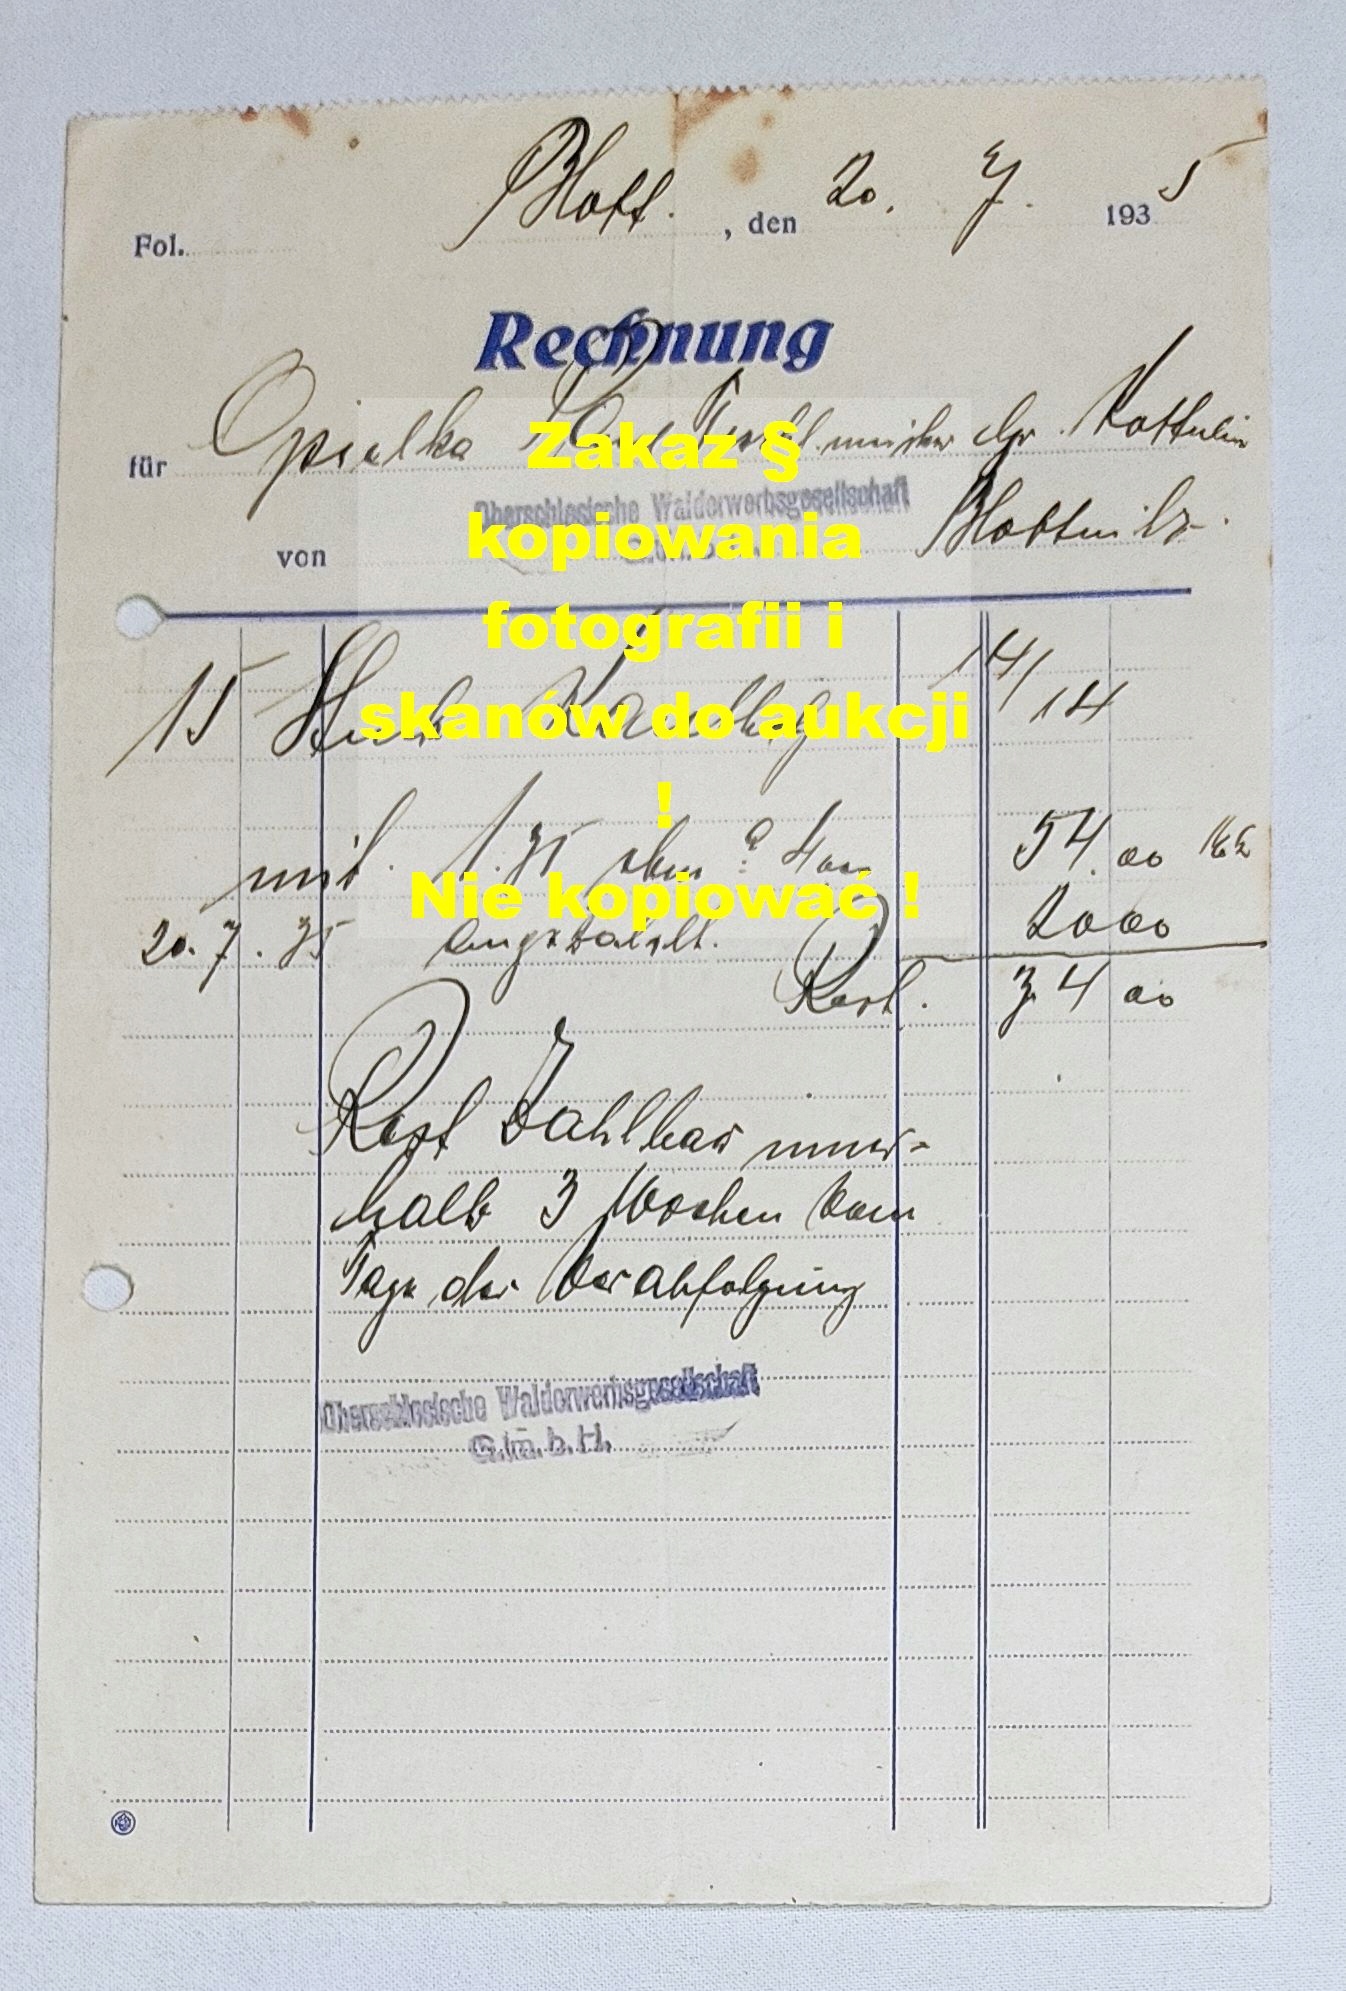 Blott. , den 20. 7. 1935
Fol.
Rechnung
für Opielka Gr. Kottulin
von Oberschlesische Walderwerbsgesellschaft
G.m.b.H.
15 Stück 14/14
mit 1.35 a 40 54.00
20.7.35 angezahlt. 20 00
Rest. 34 00
Rest Zahlbar inner-
halb 3 Wochen vom
Tage der Verabfolgung
Oberschlesische Walderwerbsgesellschaft
G.m.b.H.
Zakaz §
kopiowania
fotografii i
skanów do aukcji
!
Nie kopiować !